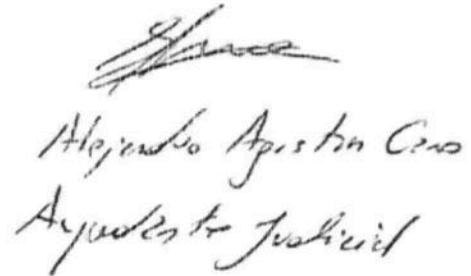 Alejandro Agustin
Ayudante Judicial